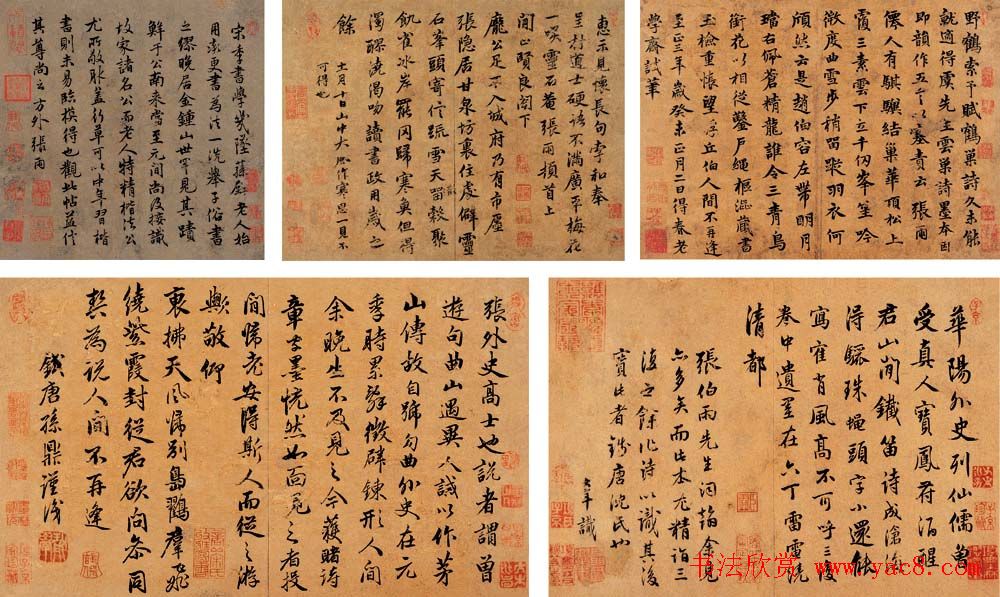 宋季書學幾墜蓀壑老人始
更書為法一洗舉子俗書
之繆晚居金鍾山世罕見其蹟
鮮于公南來當至元間尚及接識
故家諸石公而老人特精楷法公
尤所敬服蓋行草可以中年習楷
書則未易臨摸得也觀此帖益信
其尊尚之方外張雨
惠示見懷長句李和奉
呈村道士硬語不滿廣平梅花
一嗅靈石菴張雨頓首上
間正賢良閣下
龐公足不入城府乃有市廛
張隱居甘泉坊裏住處僻靈
石峯頭寄信疏雪天留穀聚
飢雀冰岸罷罔歸寒魚但得
濁醪澆渴吻讀書政用歲之
餘
十一月十日山中大風作寒思一見不
可得也
野鶴索予賦鶴巢詩久未能
就適得虞先生雲巢詩墨本因
即韻作五言以塞責云張雨
僊人有騏驥結巢華頂松上
霞三素雲下立千仞峯笙吟
度曲雪步稍留羽衣何
頎然云是趙伯容左帶明月
璫右佩蒼精龍誰令三青鳥
銜花以相從鑿戶繩樞藏書
玉檢重悵望浮丘伯人間不再逢
至正三年歲癸未正月二日得春老
學齋試筆
張外史高士也說者謂曾
遊句曲山遇異人誠以作茅
山傳故自號句曲外史在元
季時累辭徵辟鍊形人間
余晚生不及見之今獲睹詩
章字墨恍然如面之者投
間歸老安得斯人而從之游
歟敬仰
裏拂天風歸別島鸐羣飛
繞紫霞封從君欲向叅同
契為說人間不再逢
錢唐孫鼎謹識
華陽外史列仙儒曾
受真人寶鳳符酒醒
君山間鐵笛詩成滄海
得驪珠蠅頭字小還能
寫有風高不可呼三復
卷中遺墨在六丁雷電繞
清都
張伯雨先生詞翰余見
亦多矣而此本尤精詣三
復之餘作詩以識其後
寶此者錢唐沈氏也
書法欣賞 www.yac8.com